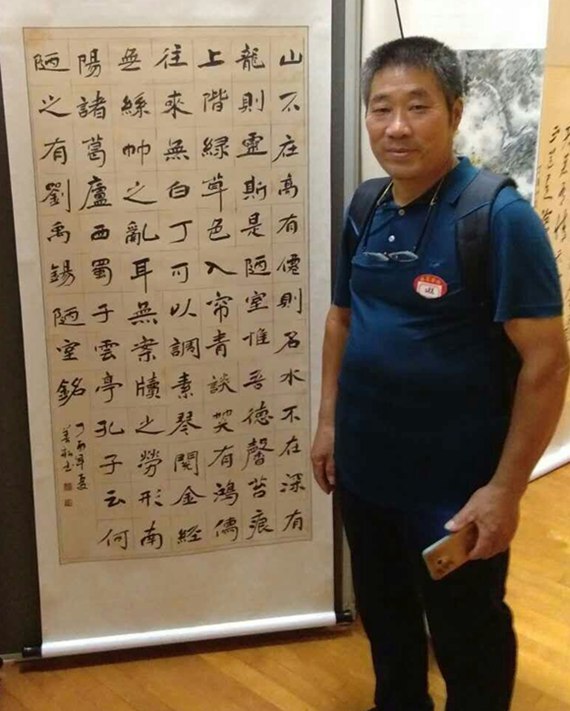 山不在高有僊則名水不在深有
龍則靈斯是陋室惟吾德馨苔痕
上階緑草色入帘青談笑有鴻儒
往來無白丁可以調素琴閱金經
無絲竹之亂耳無案牘之勞形南
陽諸葛廬西蜀子雲亭孔子云何
陋之有劉禹錫陋室銘
丁酉年夏